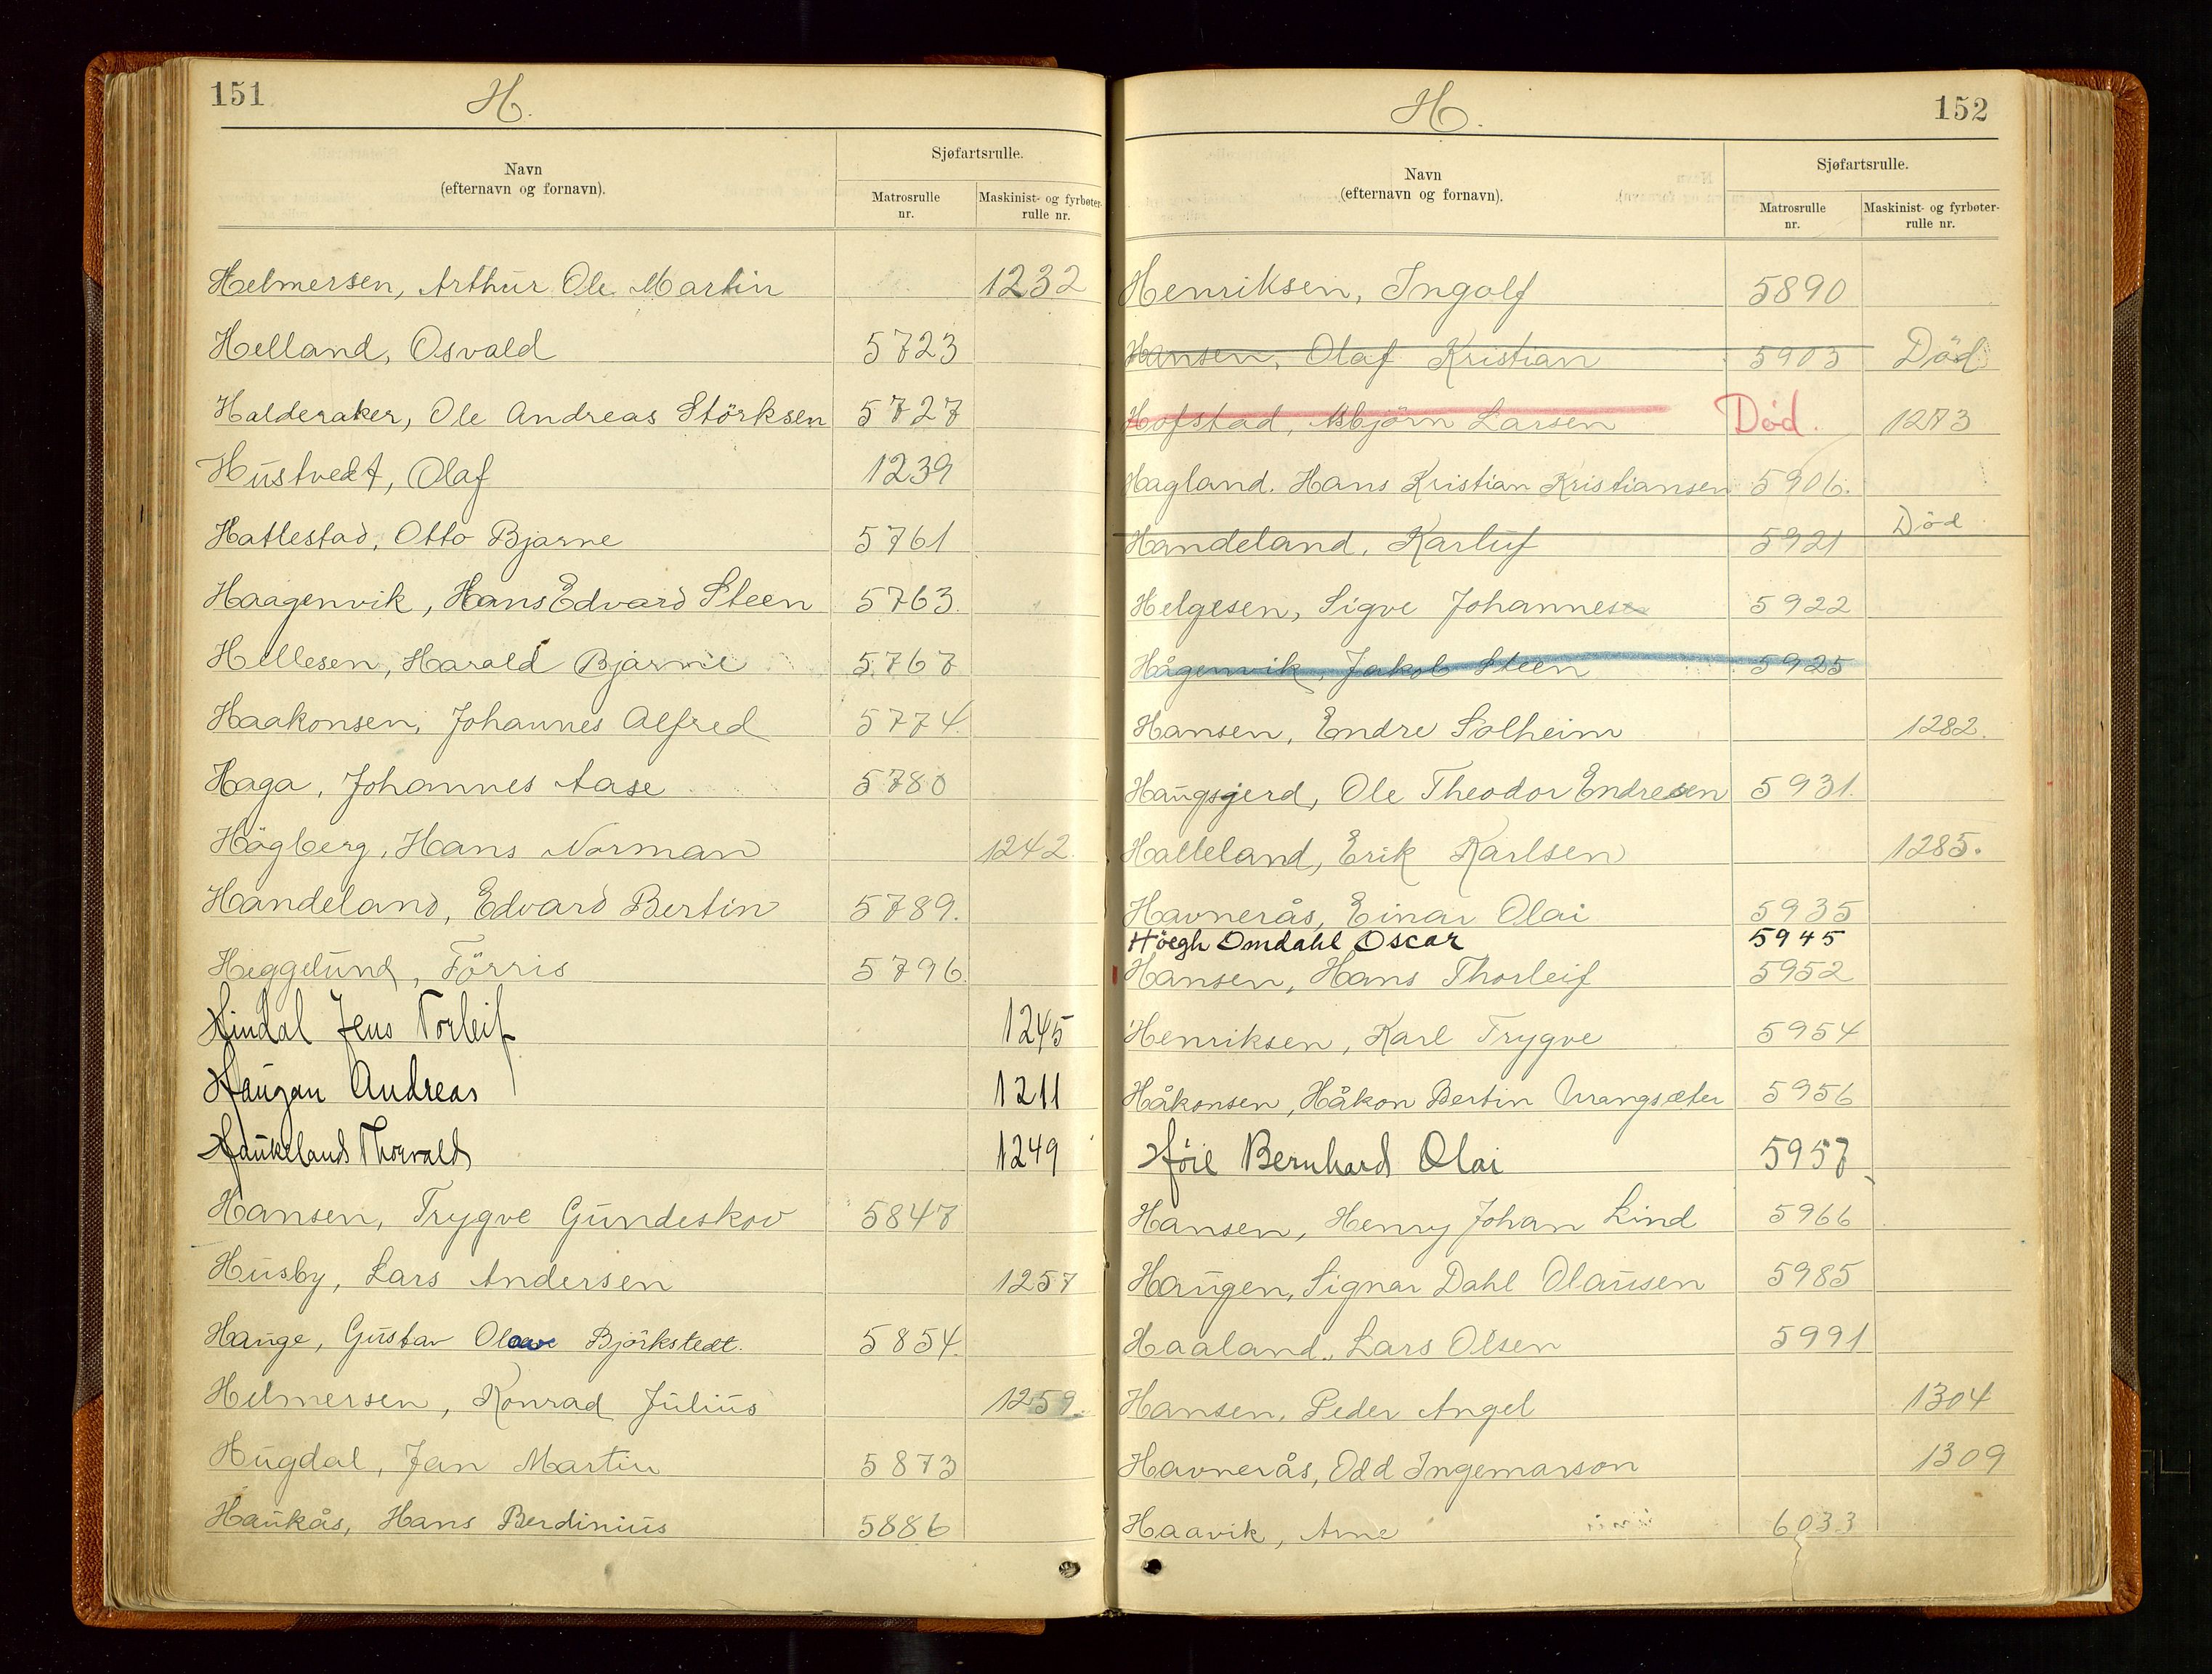 151
H.
Navn
(efternavn og fornavn).
Sjøfartsrulle.
Matrosrulle
nr.
Maskinist- og fyrbøter-
rulle nr.
Helmersen, Arthur Ole Martin 1232
Helland, Osvald 5723
Halderaker, Ole Andreas Störksen 5727
Hustvedt, Olaf 1239
Hatlestad, Otto Bjarne 5761
Haagenvik, Hans Edvard Steen 5763.
Hellesen, Harald Bjarne 5767
Haakonsen, Johannes Alfred 5774.
Haga, Johannes Aase 5780
Högberg, Hans Norman 1242.
Handeland, Edvard Bertin 5789.
Heggelund, Förris 5796.
Hindal Jens Torleif 1245
Haugan Andreas 1211
Haukeland Thorvald 1249
Hansen, Trygve Gundeskov 5847
Husby, Lars Andersen 1257
Hauge, Gustav Olav Björkstedt. 5854.
Helmersen, Konrad Julius 1259.
Hugdal, Jan Martin 5873
Haukås, Hans Berdinius 5886
152
H.
Navn
(efternavn og fornavn).
Sjøfartsrulle.
Matrosrulle
nr.
Maskinist- og fyrbøter-
rulle nr.
Henriksen, Ingolf 5890
Hansen, Olaf Kristian 5903 Död
Hofstad, Asbjörn Larsen Död. 1273
Hagland. Hans Kristian Kristiansen 5906.
Handeland, Karluf 5921 Död
Helgesen, Sigve Johannes 5922
Hågenvik, Jakob Steen 5925
Hansen, Endre Solheim 1282.
Haugsgjerd, Ole Theodor Endresen 5931.
Halleland, Erik Karlsen 1285.
Havnerås, Einar Olai 5935
Höegh Omdahl Oscar 5945
Hansen, Hans Thorleif 5952
Henriksen, Karl Trygve 5954
Håkonsen, Håkon Bertin Vrangsæter 5956
Höie Bernhard Olai 5957
Hansen, Henry Johan Lind 5966
Haugen, Signar Dahl Olausen 5985
Haaland, Lars Olsen 5991
Hansen, Peder Angel 1304
Havnerås, Odd Ingemarson 1309
Haavik, Arne 6033